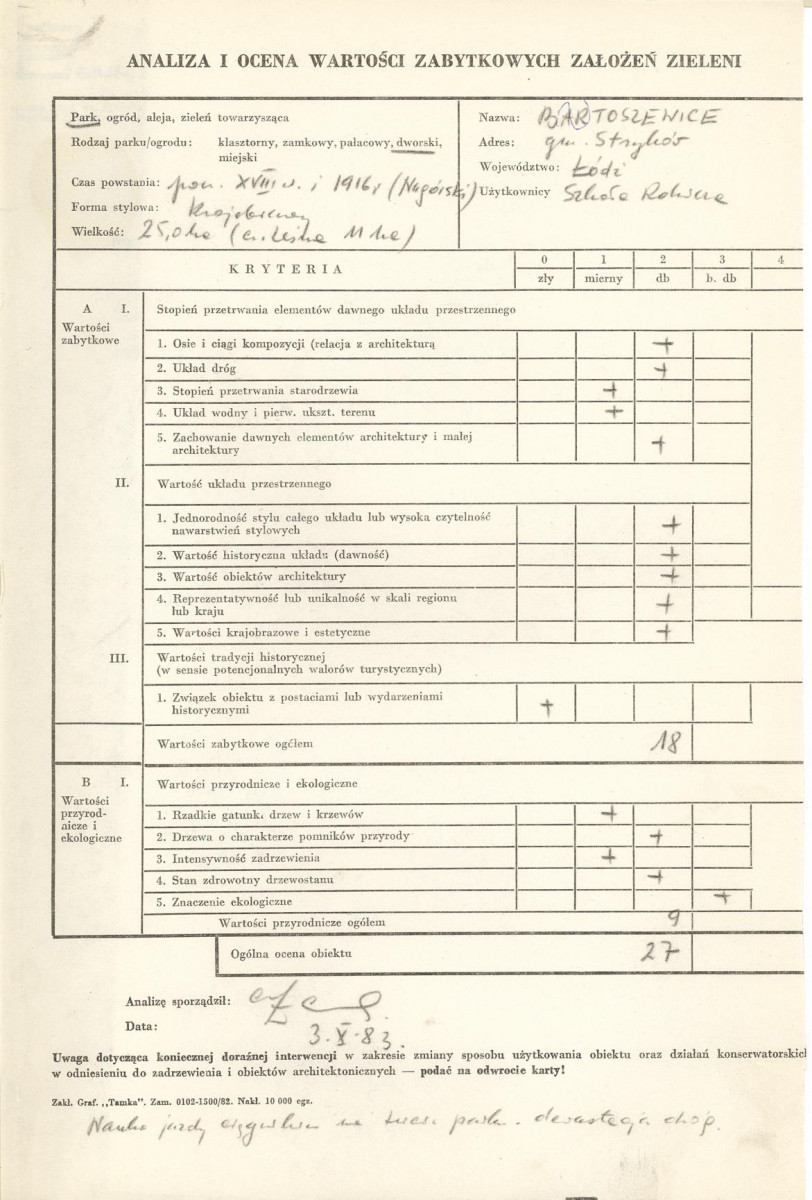 ANALIZA I OCENA WARTOŚCI ZABYTKOWYCH ZAŁOŻEŃ ZIELENI
Park, ogród, aleja, zieleń towarzysząca
Rodzaj parku/ogrodu: klasztorny, zamkowy, pałacowy, dworski, miejski
Czas powstania: poœ. XVIII w. i 1916 r (Nagórski)
Forma stylowa: Krajobrazowy
Wielkość: 25,0 ha (cz. leśna 11 ha)
Nazwa: BARTOSZEWICE
Adres: gm. Stryków
Województwo: Łódź
Użytkownicy Szkoła Rolnicza
KRYTERIA
0 1 2 3 4
zły mierny db b. db
A I. Stopień przetrwania elementów dawnego układu przestrzennego
Wartości zabytkowe
1. Osie i ciągi kompozycji (relacja z architekturą +
2. Układ dróg +
3. Stopień przetrwania starodrzewia +
4. Układ wodny i pierw. ukszt. terenu +
5. Zachowanie dawnych elementów architektury i małej architektury +
II. Wartość układu przestrzennego
1. Jednorodność stylu całego układu lub wysoka czytelność nawarstwień stylowych +
2. Wartość historyczna układu (dawność) +
3. Wartość obiektów architektury +
4. Reprezentatywność lub unikalność w skali regionu lub kraju +
5. Wartości krajobrazowe i estetyczne +
III. Wartości tradycji historycznej
(w sensie potencjonalnych walorów turystycznych)
1. Związek obiektu z postaciami lub wydarzeniami historycznymi +
Wartości zabytkowe ogółem 18
B I. Wartości przyrodnicze i ekologiczne
Wartości przyrodnicze i ekologiczne
1. Rzadkie gatunki drzew i krzewów +
2. Drzewa o charakterze pomników przyrody +
3. Intensywność zadrzewienia +
4. Stan zdrowotny drzewostanu +
5. Znaczenie ekologiczne +
Wartości przyrodnicze ogółem 9
Ogólna ocena obiektu 27
Analizę sporządził:
Data: 3.X.83.
Uwaga dotycząca koniecznej doraźnej interwencji w zakresie zmiany sposobu użytkowania obiektu oraz działań konserwatorskich
w odniesieniu do zadrzewienia i obiektów architektonicznych — podać na odwrocie karty!
Zakł. Graf. „Tamka". Zam. 0102-1500/82. Nakł. 10 000 egz.
Nauka jazdy ciągników na terenie parku. dewastacja dróg.